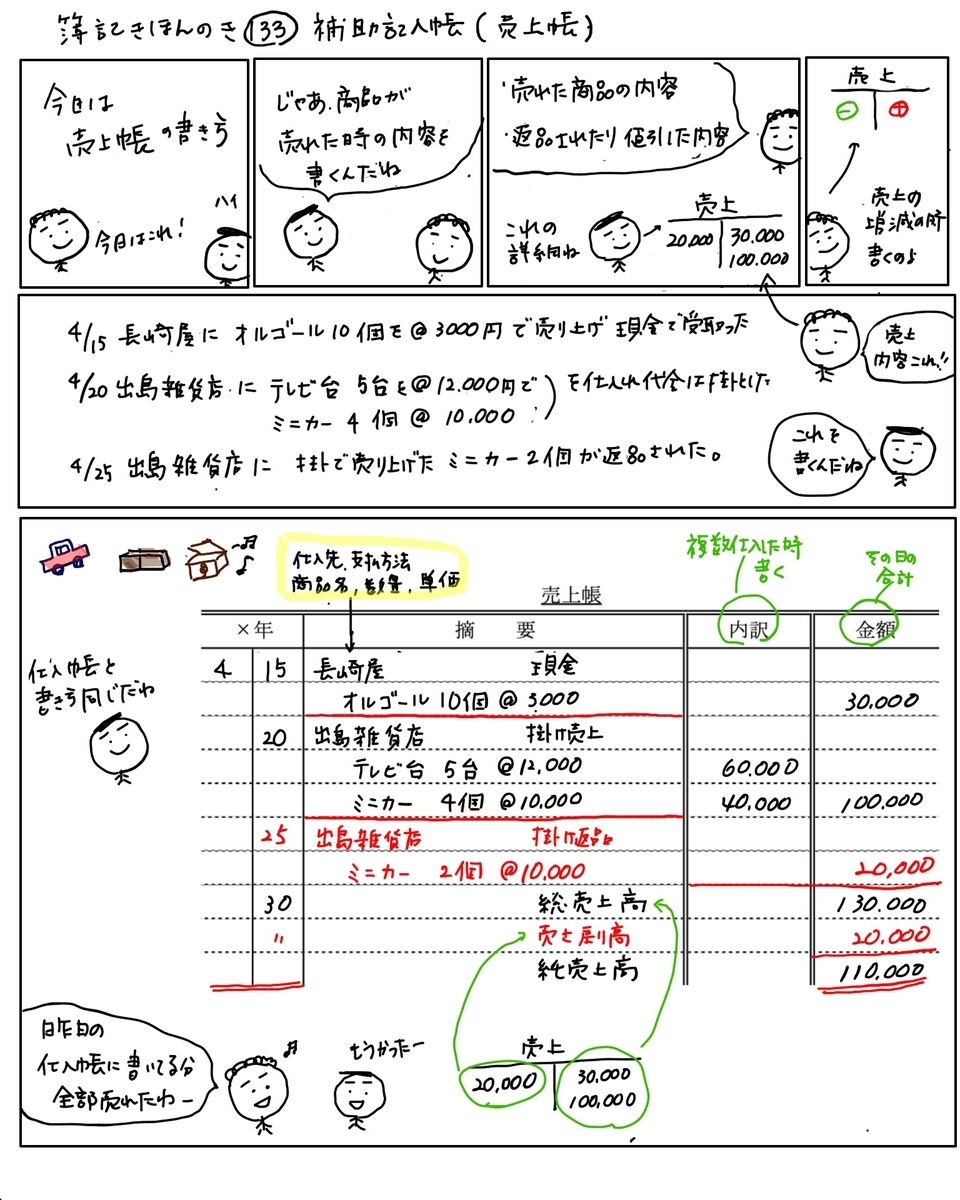 簿記きほんのき 133 補助記入帳(売上帳)
今日は
売上帳の書き方
今日はこれ!
ハイ
じゃあ、商品が
売れた時の内容を
書くんだね
・売れた商品の内容
・返品されたり値引した内容
これの
詳細ね
売上
20,000 30.000
100.000
売上
⊖ ⊕
売上の
増減の時
書くのよ
4/15 長崎屋に オルゴール10個を@3000円で売り上げ 現金で受取った
4/20 出島雑貨店に テレビ台 5台を@12.000円で
ミニカー 4個 @10,000
を仕入れ代金は掛とした
4/25 出島雑貨店に 掛で売り上げた ミニカー2個が返品された。
売上
内容これ!!
これを
書くんだね
仕入先、支払方法
商品名, 数量, 単価
複数仕入した時
書く
その日の
合計
売上帳
×年 摘要 内訳 金額
仕入帳と
書き方同じだね
4 15 長崎屋 現金
オルゴール 10個 @3,000 30.000
20 出島雑貨店 掛け売上
テレビ台 5台 @12,000 60.000
ミニカー 4個 @10,000 40.000 100.000
25 出島雑貨店 掛け返品
ミニカー 2個 @10,000 20,000
30 総売上高 130.000
〃 売上戻り高 20.000
純売上高 110.000
昨日の
仕入帳に書いてる分
全部売れたわー
もうかったー
売上
20,000 30.000
100,000